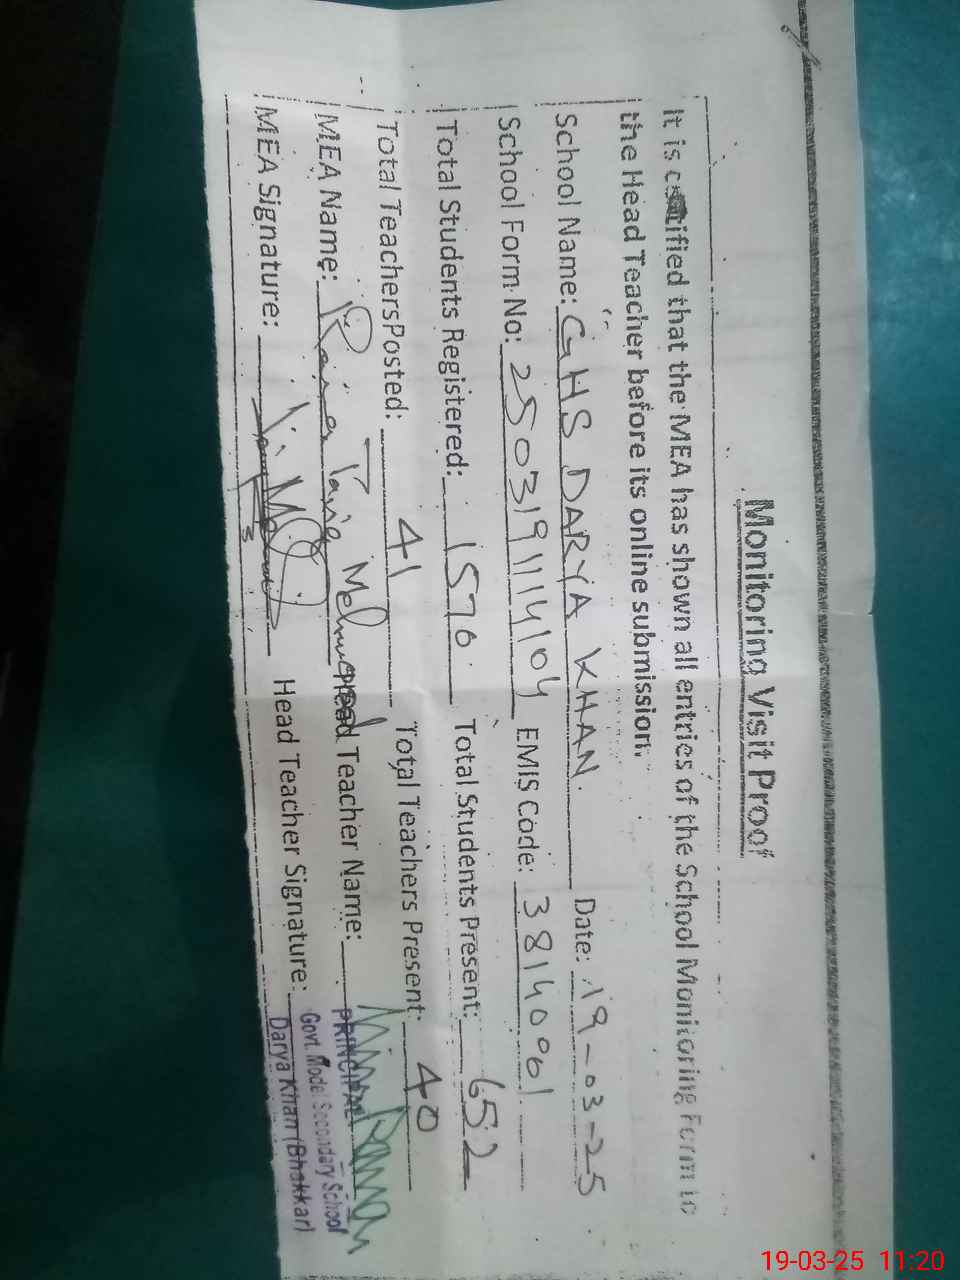 Monitoring Visit Proof
It is certified that the MEA has shown all entries of the School Monitoring Form to
the Head Teacher before its online submission.
School Name: GHS DARYA KHAN. Date: 19-03-25
School Form No: 2503191114104 EMIS Code: 38140001
Total Students Registered: 1570 Total Students Present: 652
Total TeachersPosted: 41 Total Teachers Present: 40
MEA Name: Rana Tariq Mehmood Head Teacher Name:
MEA Signature: Head Teacher Signature:
PRINCIPAL
Govt. Model Secondary School
Darya Khan (Bhakkar)
19-03-25 11:20